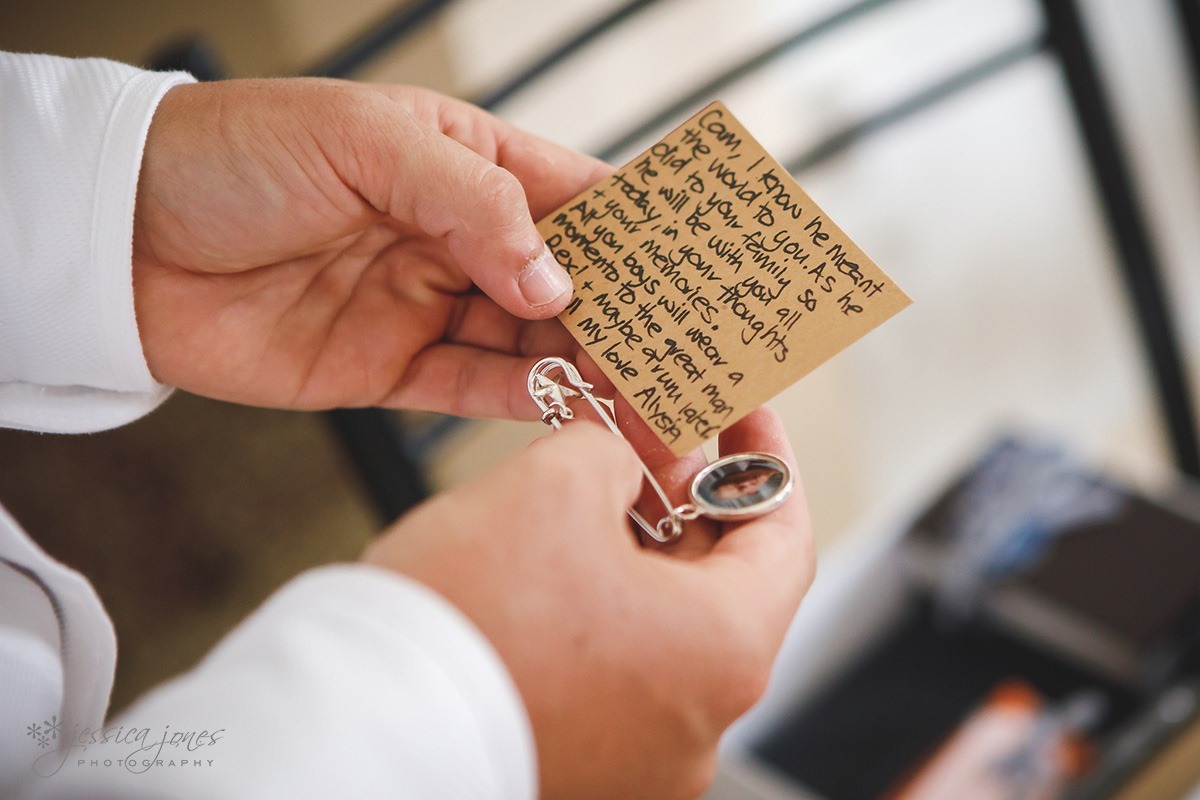 Cam, I know he meant
the world to you. As he
did to your family so
he will be with you all
today, in your thoughts
+ your memories.
All you boys will wear a
momento to the great man
Rex! + maybe a rum later
All my love Alysia
jessica jones
PHOTOGRAPHY